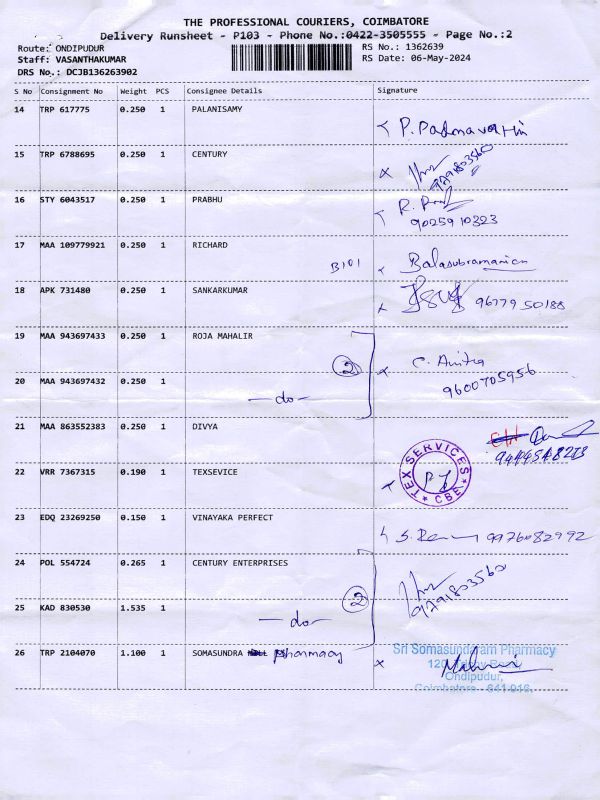 THE PROFESSIONAL COURIERS, COIMBATORE
Delivery Runsheet - P103 - Phone No.:0422-3505555 - Page No.:2
Route: ONDIPUDUR
RS No.: 1362639
Staff: VASANTHAKUMAR
RS Date: 06-May-2024
DRS No.: DCJB136263902
S No Consignment No Weight PCS Consignee Details Signature
14 TRP 617775 0.250 1 PALANISAMY P. Padmavathi
15 TRP 6788695 0.250 1 CENTURY
9791803560
16 STY 6043517 0.250 1 PRABHU
9025910323
17 MAA 109779921 0.250 1 RICHARD B101 Balasubramanian
18 APK 731480 0.250 1 SANKARKUMAR 96779 50188
19 MAA 943697433 0.250 1 ROJA MAHALIR
2 C. Anitha
20 MAA 943697432 0.250 1 9600705956
-do-
21 MAA 863552383 0.250 1 DIVYA
22 VRR 7367315 0.190 1 TEXSEVICE
TEX SERVICES
CBE
23 EDQ 23269250 0.150 1 VINAYAKA PERFECT
9976082992
24 POL 554724 0.265 1 CENTURY ENTERPRISES
2 9791803560
25 KAD 830530 1.535 1
-do-
26 TRP 2104070 1.100 1 SOMASUNDRA pharmacy
Sri Somasundaram Pharmacy
Ondipudur,
Coimbatore - 641 016.